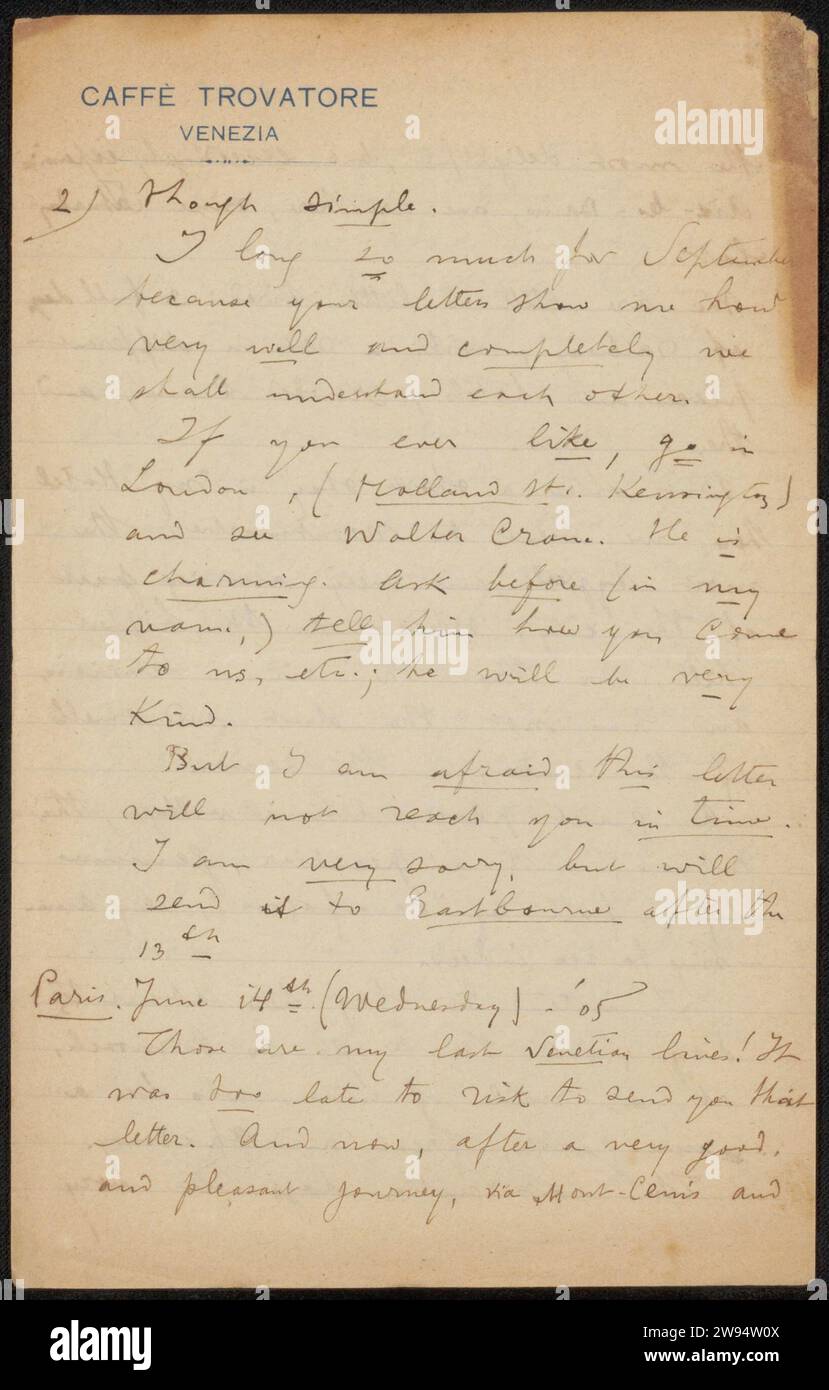 CAFFÈ TROVATORE
VENEZIA
2) though simple.
I long so much for September
because your letters show me how
very well and completely we
shall understand each other.
If you ever like, go in
London, (Holland St. Kensington)
and see Walter Crane. He is
charming. Ask before (in my
name,) tell him how you come
to us, etc.; he will be very
Kind.
But I am afraid this letter
will not reach you in time.
I am very sorry, but will
send it to Eastbourne after the
13th
Paris. June 14th. (Wednesday) - '05
Those are my last Venetian lines! It
was too late to risk to send you that
letter. And now, after a very good,
and pleasant journey, via Mont-Cenis and
alamy
Image ID: 2W94W0X
www.alamy.com